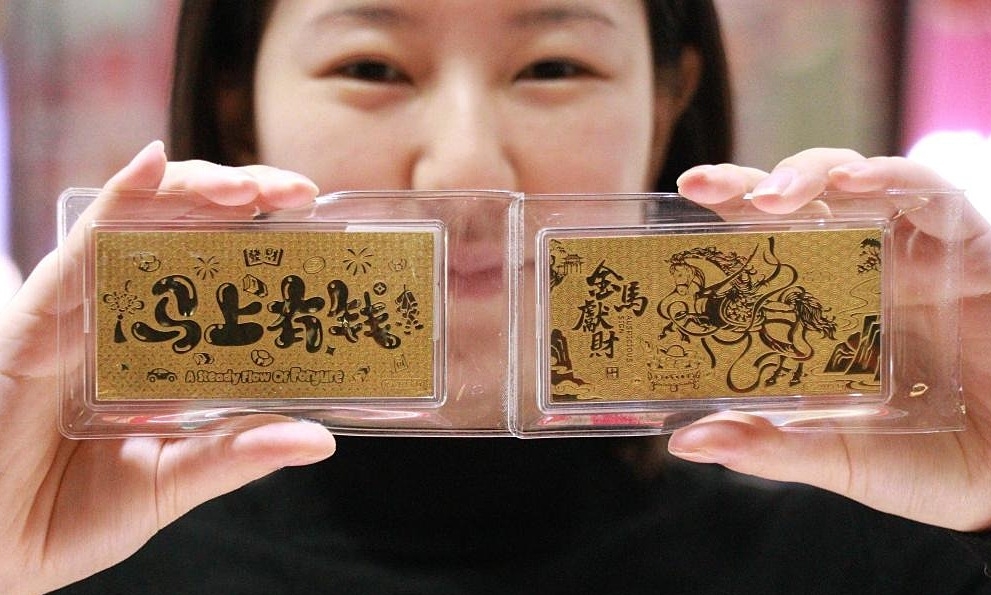 發財
马上有钱
A Steady Flow Of Foryure
金馬
獻財